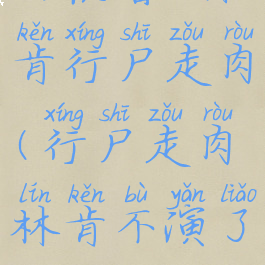 kěn xíng shī zǒu ròu
肯行尸走肉
xíng shī zǒu ròu
(行尸走肉
lín kěn bù yǎn liǎo
林肯不演了